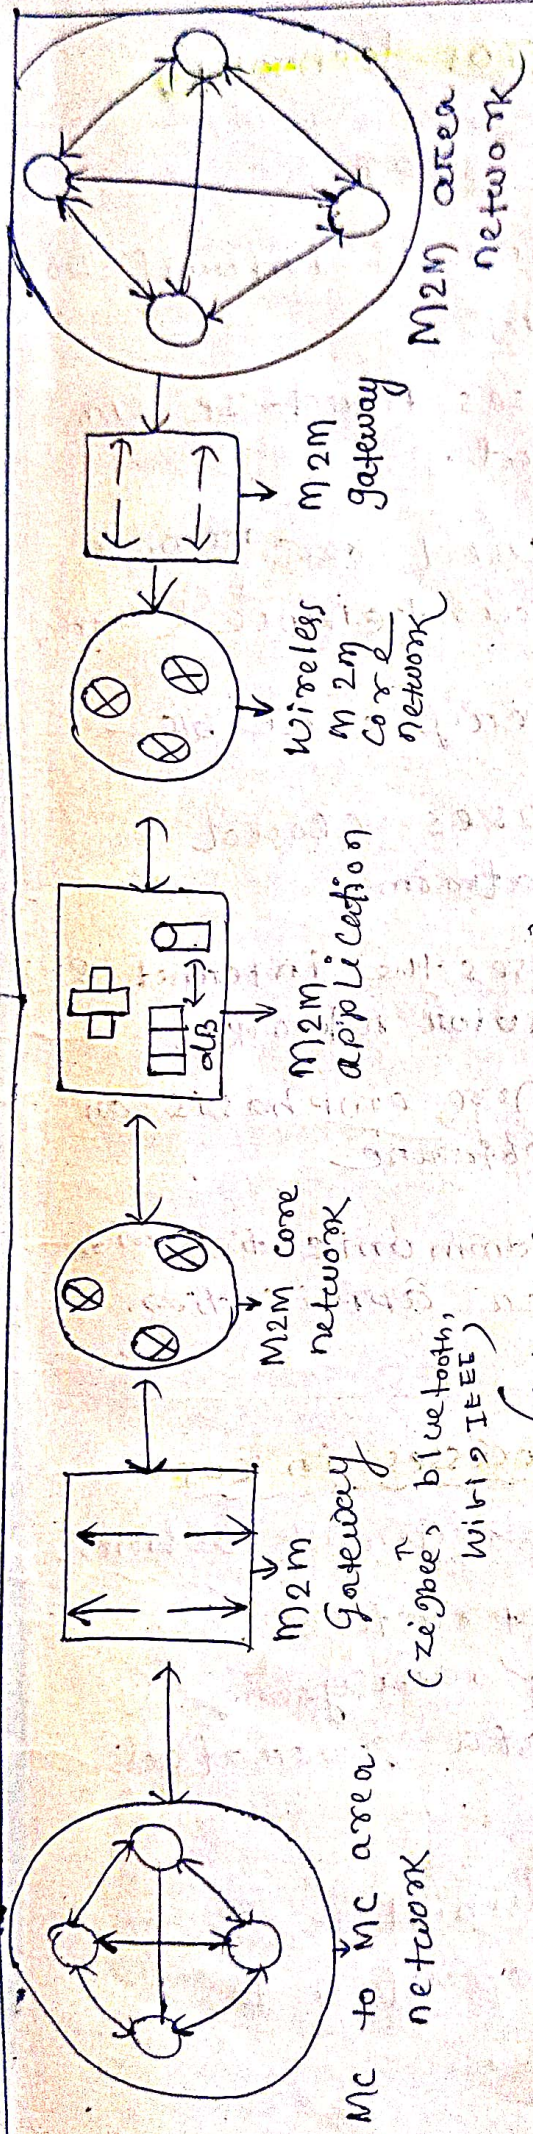 MC to MC area
network
M2M
Gateway
(zigbee, bluetooth,
Wifi, IEEE)
M2M core
network
dB
M2M
application
Wireless
M2M
core
network
M2M
gateway
M2M area
network